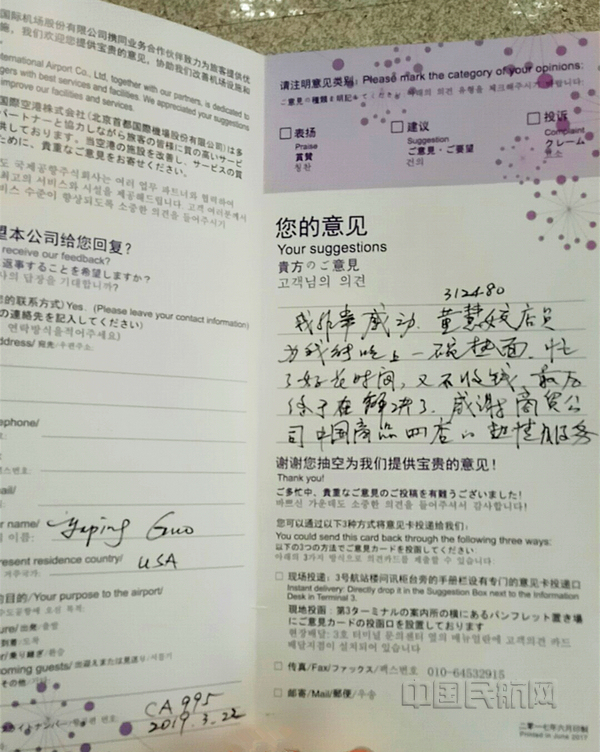 国际机场股份有限公司携同业务合作伙伴致力为旅客提供优
施，我们欢迎您提供宝贵的意见，协助我们改善机场设施和
International Airport Co., Ltd, together with our partners, is dedicated to
gers with best services and facilities. We appreciated your suggestions
improve our facilities and services.
国際空港株式会社(北京首都国際機場股份有限公司)は多
パートナーと協力しながら旅客の皆様に質の高いサービ
供しております。当空港の施設を改善し、サービスの質
ために、貴重なご意見をお寄せください。
도 국제공항주식회사는 여러 업무 파트너와 협력하여
최고의 서비스와 시설을 제공해드립니다. 고객 여러분께서
비스 수준이 향상되도록 소중한 의견을 들어주시기
望本公司给您回复?
receive our feedback?
返事することを希望しますか？
사의 답장을 기대합니까?
的联系方式) Yes. (Please leave your contact information)
の連絡先を記入してください)
연락방식을적어주세요)
address/ 宛先/우편주소:
ephone/
ail/
r name/ Yaping Guo
이름:
resent residence country/ USA
거주국가:
的目的/Your purpose to the airport/
수도공항에 오신 목적:
ure/出発/출발
到着/도착
/乗り継ぎ/환승
oming guests/
その他/기타
CA 995
2019.3.22
请注明意见类别: Please mark the category of your opinions:
ご意見の種類を明記してください 아래의 의견 유형을 체크해주시기 바랍니다:
□ 表扬
Praise
賞賛
칭찬
□ 建议
Suggestion
ご意見・ご要望
건의
□ 投诉
Complaint
クレーム
您的意见
Your suggestions
貴方のご意見
고객님의 의견
312480
我非常感动. 黄慧姣店员
为我能吃上一碗热面, 忙
了好花时间, 又不收钱, 最后
终于在解决了. 感谢商贸公
司中国商品四店的热情服务
谢谢您抽空为我们提供宝贵的意见!
Thank you!
ご多忙中、貴重なご意見のご投稿を有難うございました！
바쁘신 가운데도 소중한 의견을 들어주셔서 감사합니다!
您可以通过以下3种方式将意见卡投递给我们:
You could send this card back through the following three ways:
以下の3つの方法でご意見カードを投函してください
아래의 3가지 방식으로 의견카드를 제출할 수 있습니다:
□ 现场投递: 3号航站楼问讯柜台旁的手册栏设有专门的意见卡投递口
Instant delivery: Directly drop it in the Suggestion Box next to the Information
Desk in Terminal 3.
現地投函：第3ターミナルの案内所の横にあるパンフレット置き場
にご意見カードの投函口を設置しております
현장배달: 3호 터미널 문의센터 옆의 메뉴얼란에 고객의견 카드
배달지점이 설치되어 있습니다
□ 传真/Fax/ファックス/팩스번호 010-64532915
□ 邮寄/Mail/郵便/우송
中国民航网
二零一七年六月印制
Printed in June 2017